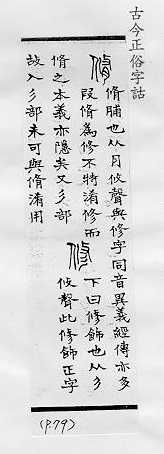 古今正俗字詁
脩
脩脯也从月攸聲與修字同音異義經傳亦多
叚脩為修不特淆修而
脩之本義亦隱矣又彡部
修
下曰修飾也从彡
攸聲此修飾正字
故入彡部未可與脩淆用
(P.79)